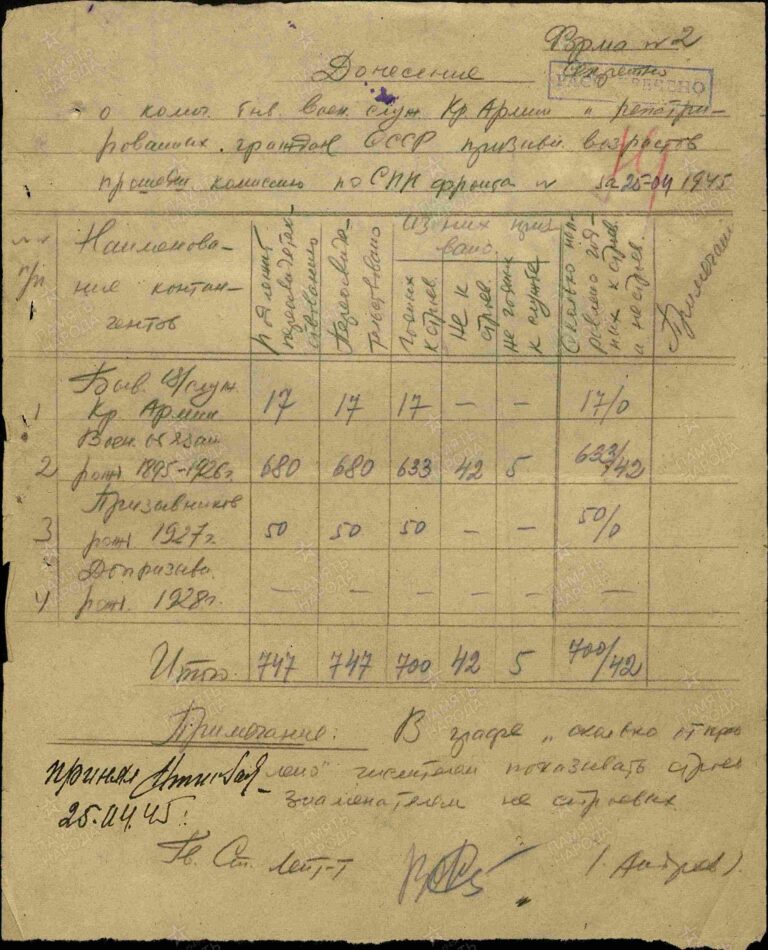 Форма № 2
Секретно
РАССЕКРЕЧЕНО
Донесение
о колич. быв. воен. служ. Кр. Армии и репатри-
рованных граждан СССР призывн. возрастов
прошедш. комиссию по СПП фронта № за 25-04 1945
п/п
Наименова-
ние контин-
гентов
подлежит
переосвидетель-
ствованию
Переосвиде-
тельствовано
Из них приз-
вано
Годных
к строев.
Не к
строев.
не годных
к службе
Сколько нап-
равлено год-
ных к строев.
и нестроев.
Примечан
1 Быв. в/служ. Кр. Армии 17 17 17 — — 17/0
2 Воен. обязан рожд 1895-1926г. 680 680 633 42 5 633/42
3 Призывников рожд 1927г. 50 50 50 — — 50/0
4 Допризыв. рожд. 1928г. — — — — — —
Итого 747 747 700 42 5 700/42
Примечание: В графе „сколько отпра
лено" числителем показывать строев
знаменателем не строевых
принял
25.04.45г.
Гв. Ст. Лейт-т